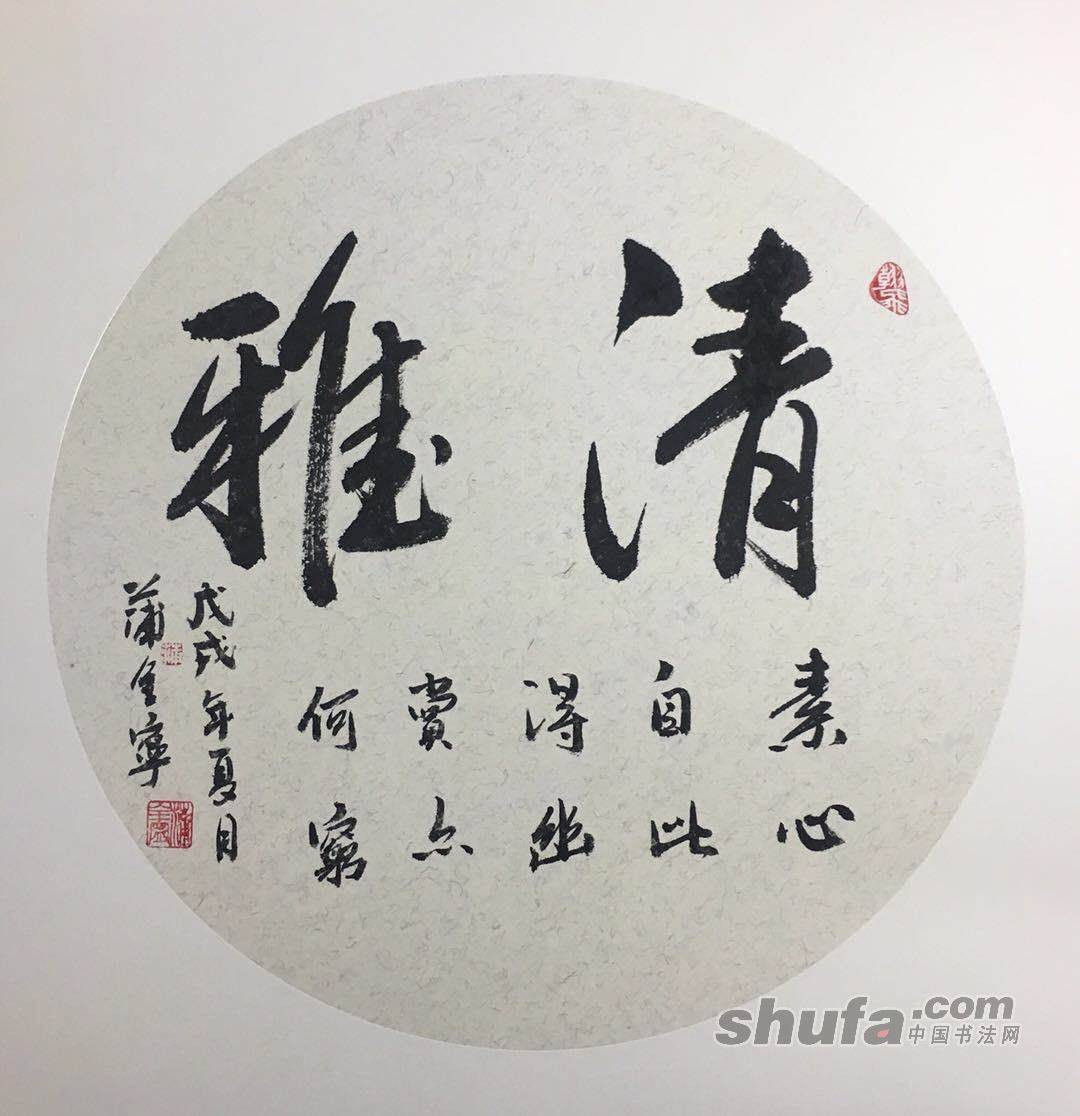 清雅
素心
自此
得幽
賞亦
何窮
戊戌年夏月
蒲金寧
shufa.com
中国书法网